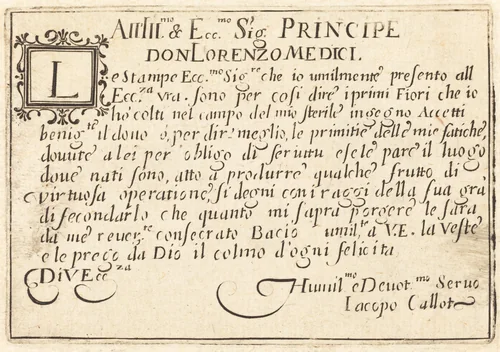 All Ill.mo & Ecc.mo Sig. PRINCIPE
DON LORENZO MEDICI.
Le Stampe Ecc.mo Sig.re che io umilmente presento all
Ecc.za vra. sono per cosi dire i primi Fiori che io
ho colti nel campo del mio sterile ingegno Accetti
benig.te il dono o, per dir meglio, le primitie delle mie fatiche,
dovute a lei per obligo di seruitu e se le pare il luogo
doue nati sono, atto a produrre qualche frutto di
virtuosa operatione, si degni con i raggi della sua gra
di fecondarlo che quanto mi sapra porgere le sara
da me reuer.te consecrato Bacio umil.te a V.E. la Veste
e le prego da Dio il colmo d'ogni felicita
Di V Ecc.za
Humil.mo e Devot.mo Seruo
Iacopo Callot